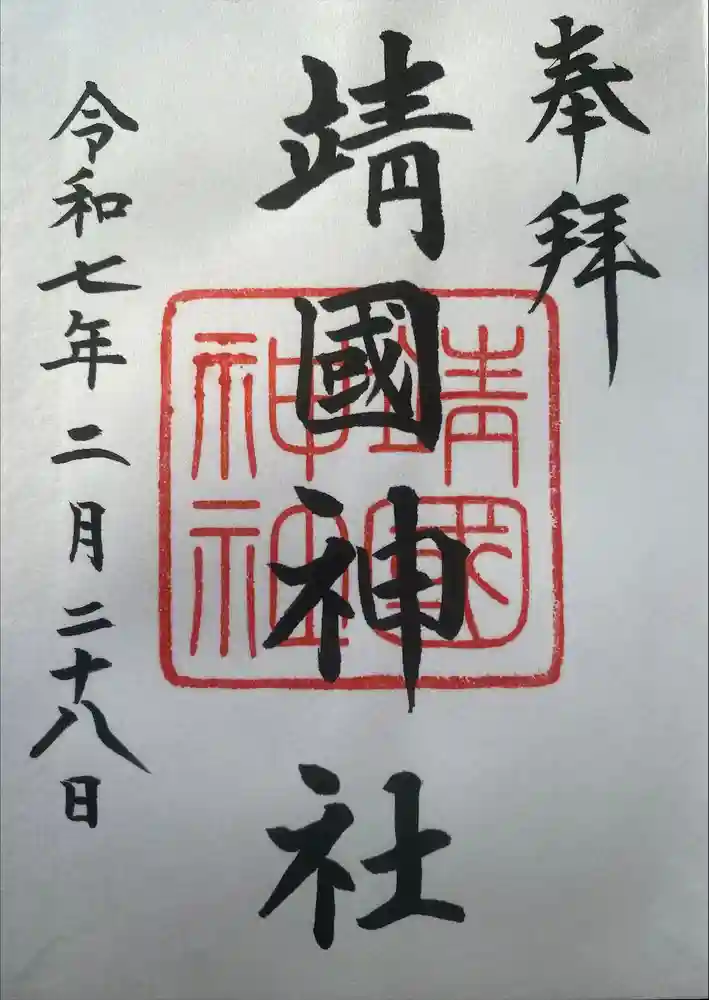 奉拝
靖國神社
靖國
神社
令和七年二月二十八日